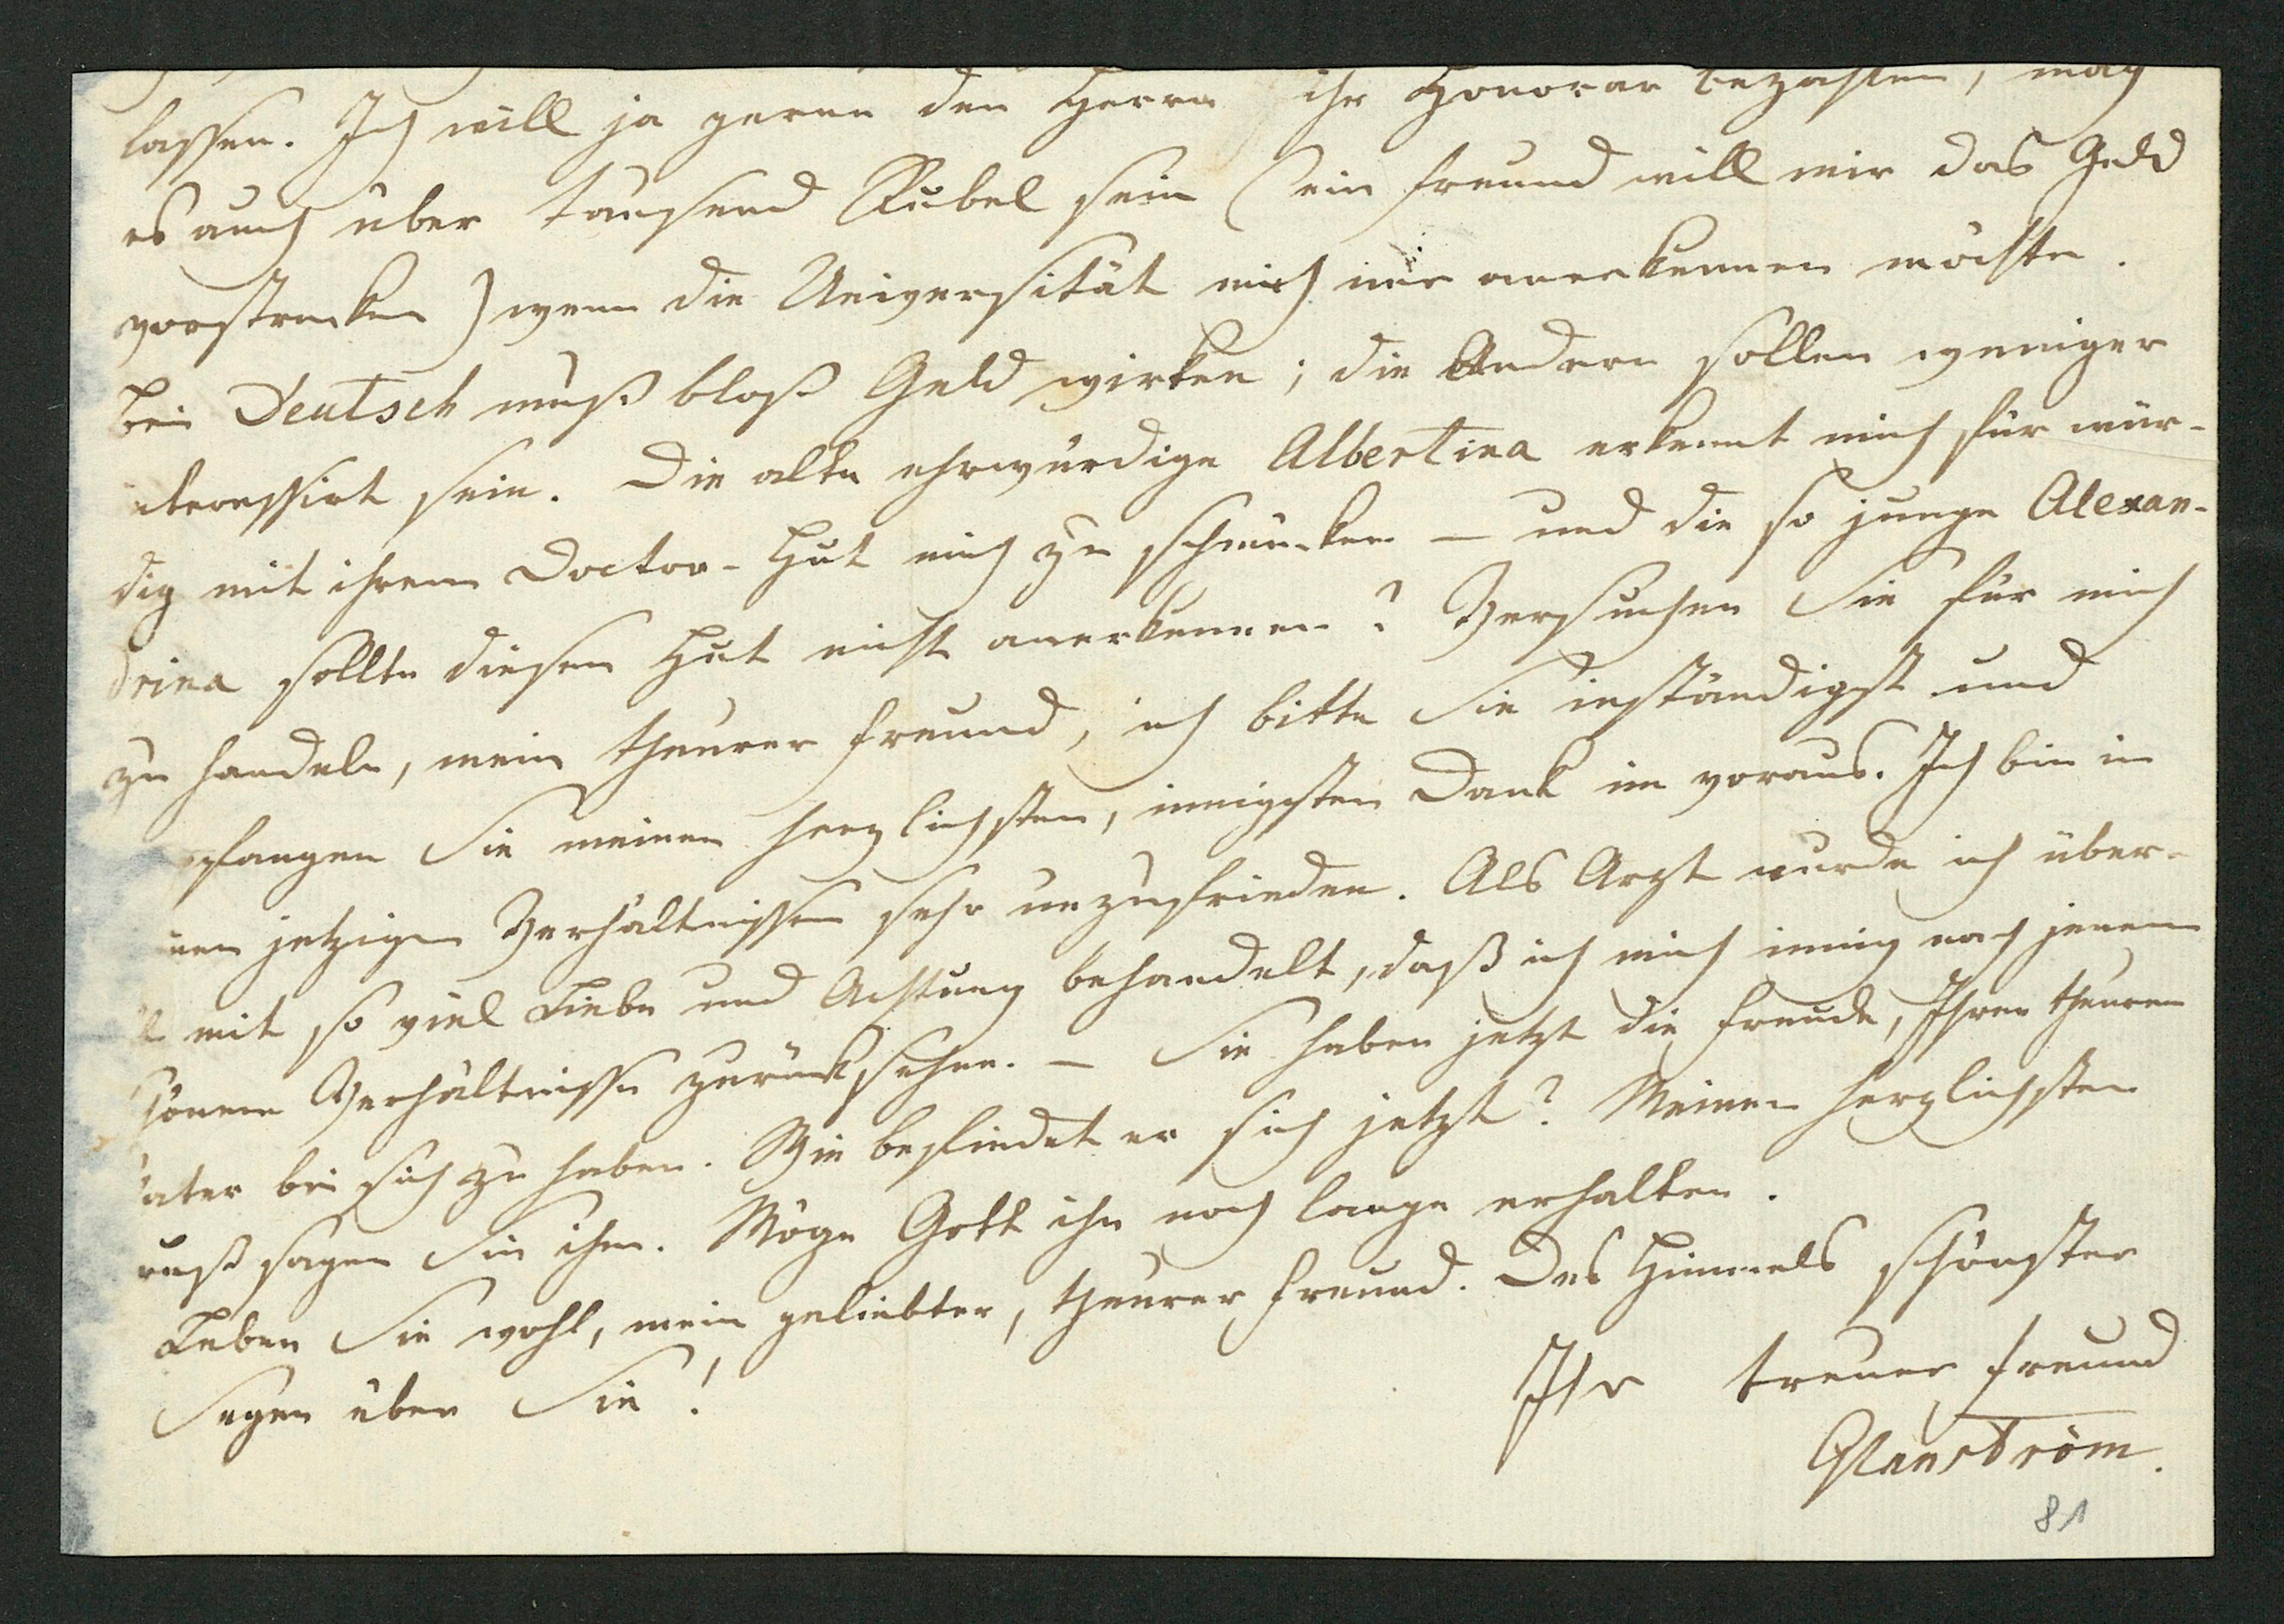 lassen. Ich will ja gerne den Herrn ihr Honorar bezahlen, mag
es auch über tausend Rubel sein (ein Freund will mir das Geld
vorstrecken) wenn die Universität mich nur anerkennen möchte.
Bei Deutsch muß bloß Geld wirken; die Andern sollen weniger
interessirt sein. Die alte ehrwürdige Albertina erkennt mich für wür-
dig mit ihrem Doctor-Hut mich zu schmücken – und die so junge Alexan-
drina sollte diesen Hut nicht anerkennen? Versuchen Sie für mich
zu handeln, mein theurer Freund, ich bitte Sie inständigst und
pfangen Sie meinen herzlichsten, innigsten Dank im voraus. Ich bin in
nen jetzigen Verhältnissen sehr unzufrieden. Als Arzt wurde ich über-
ll mit so viel Liebe und Achtung behandelt, daß ich mich innig nach jenem
hönen Verhältnisse zurücksehne. – Sie haben jetzt die Freude, Ihren theuren
ater bei sich zu haben. Wie befindet er sich jetzt? Meinen herzlichsten
ruß sagen Sie ihm. Möge Gott ihn noch lange erhalten.
Leben Sie wohl, mein geliebter, theurer Freund. Des Himmels schönster
Segen über Sie!
Ihr treuer Freund
Glanström.
81